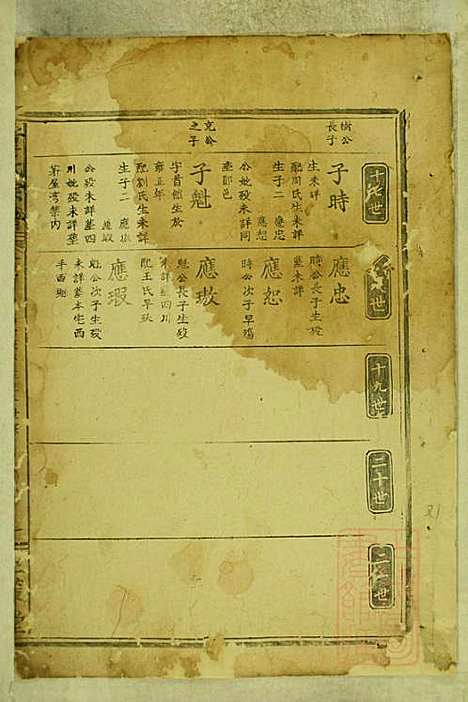 十七世
樹公
長子
子時
生未詳
配周氏生未詳
生子二 應忠
應恕
公妣歿未詳同
塟邵邑
克公
之子
子魁
字首儒生於
雍正年
配劉氏生未詳
生子二 應璈
應瑕
公歿未詳塟四
川妣歿未詳塟
茅屋湾塋内
世
應忠
時公長子生歿
塟未詳
應恕
時公次子早殤
應璈
魁公長子生歿
未詳塟四川
配王氏早歿
應瑕
魁公次子生歿
未詳塟本宅西
手西
十九世
二十世
二
世
21